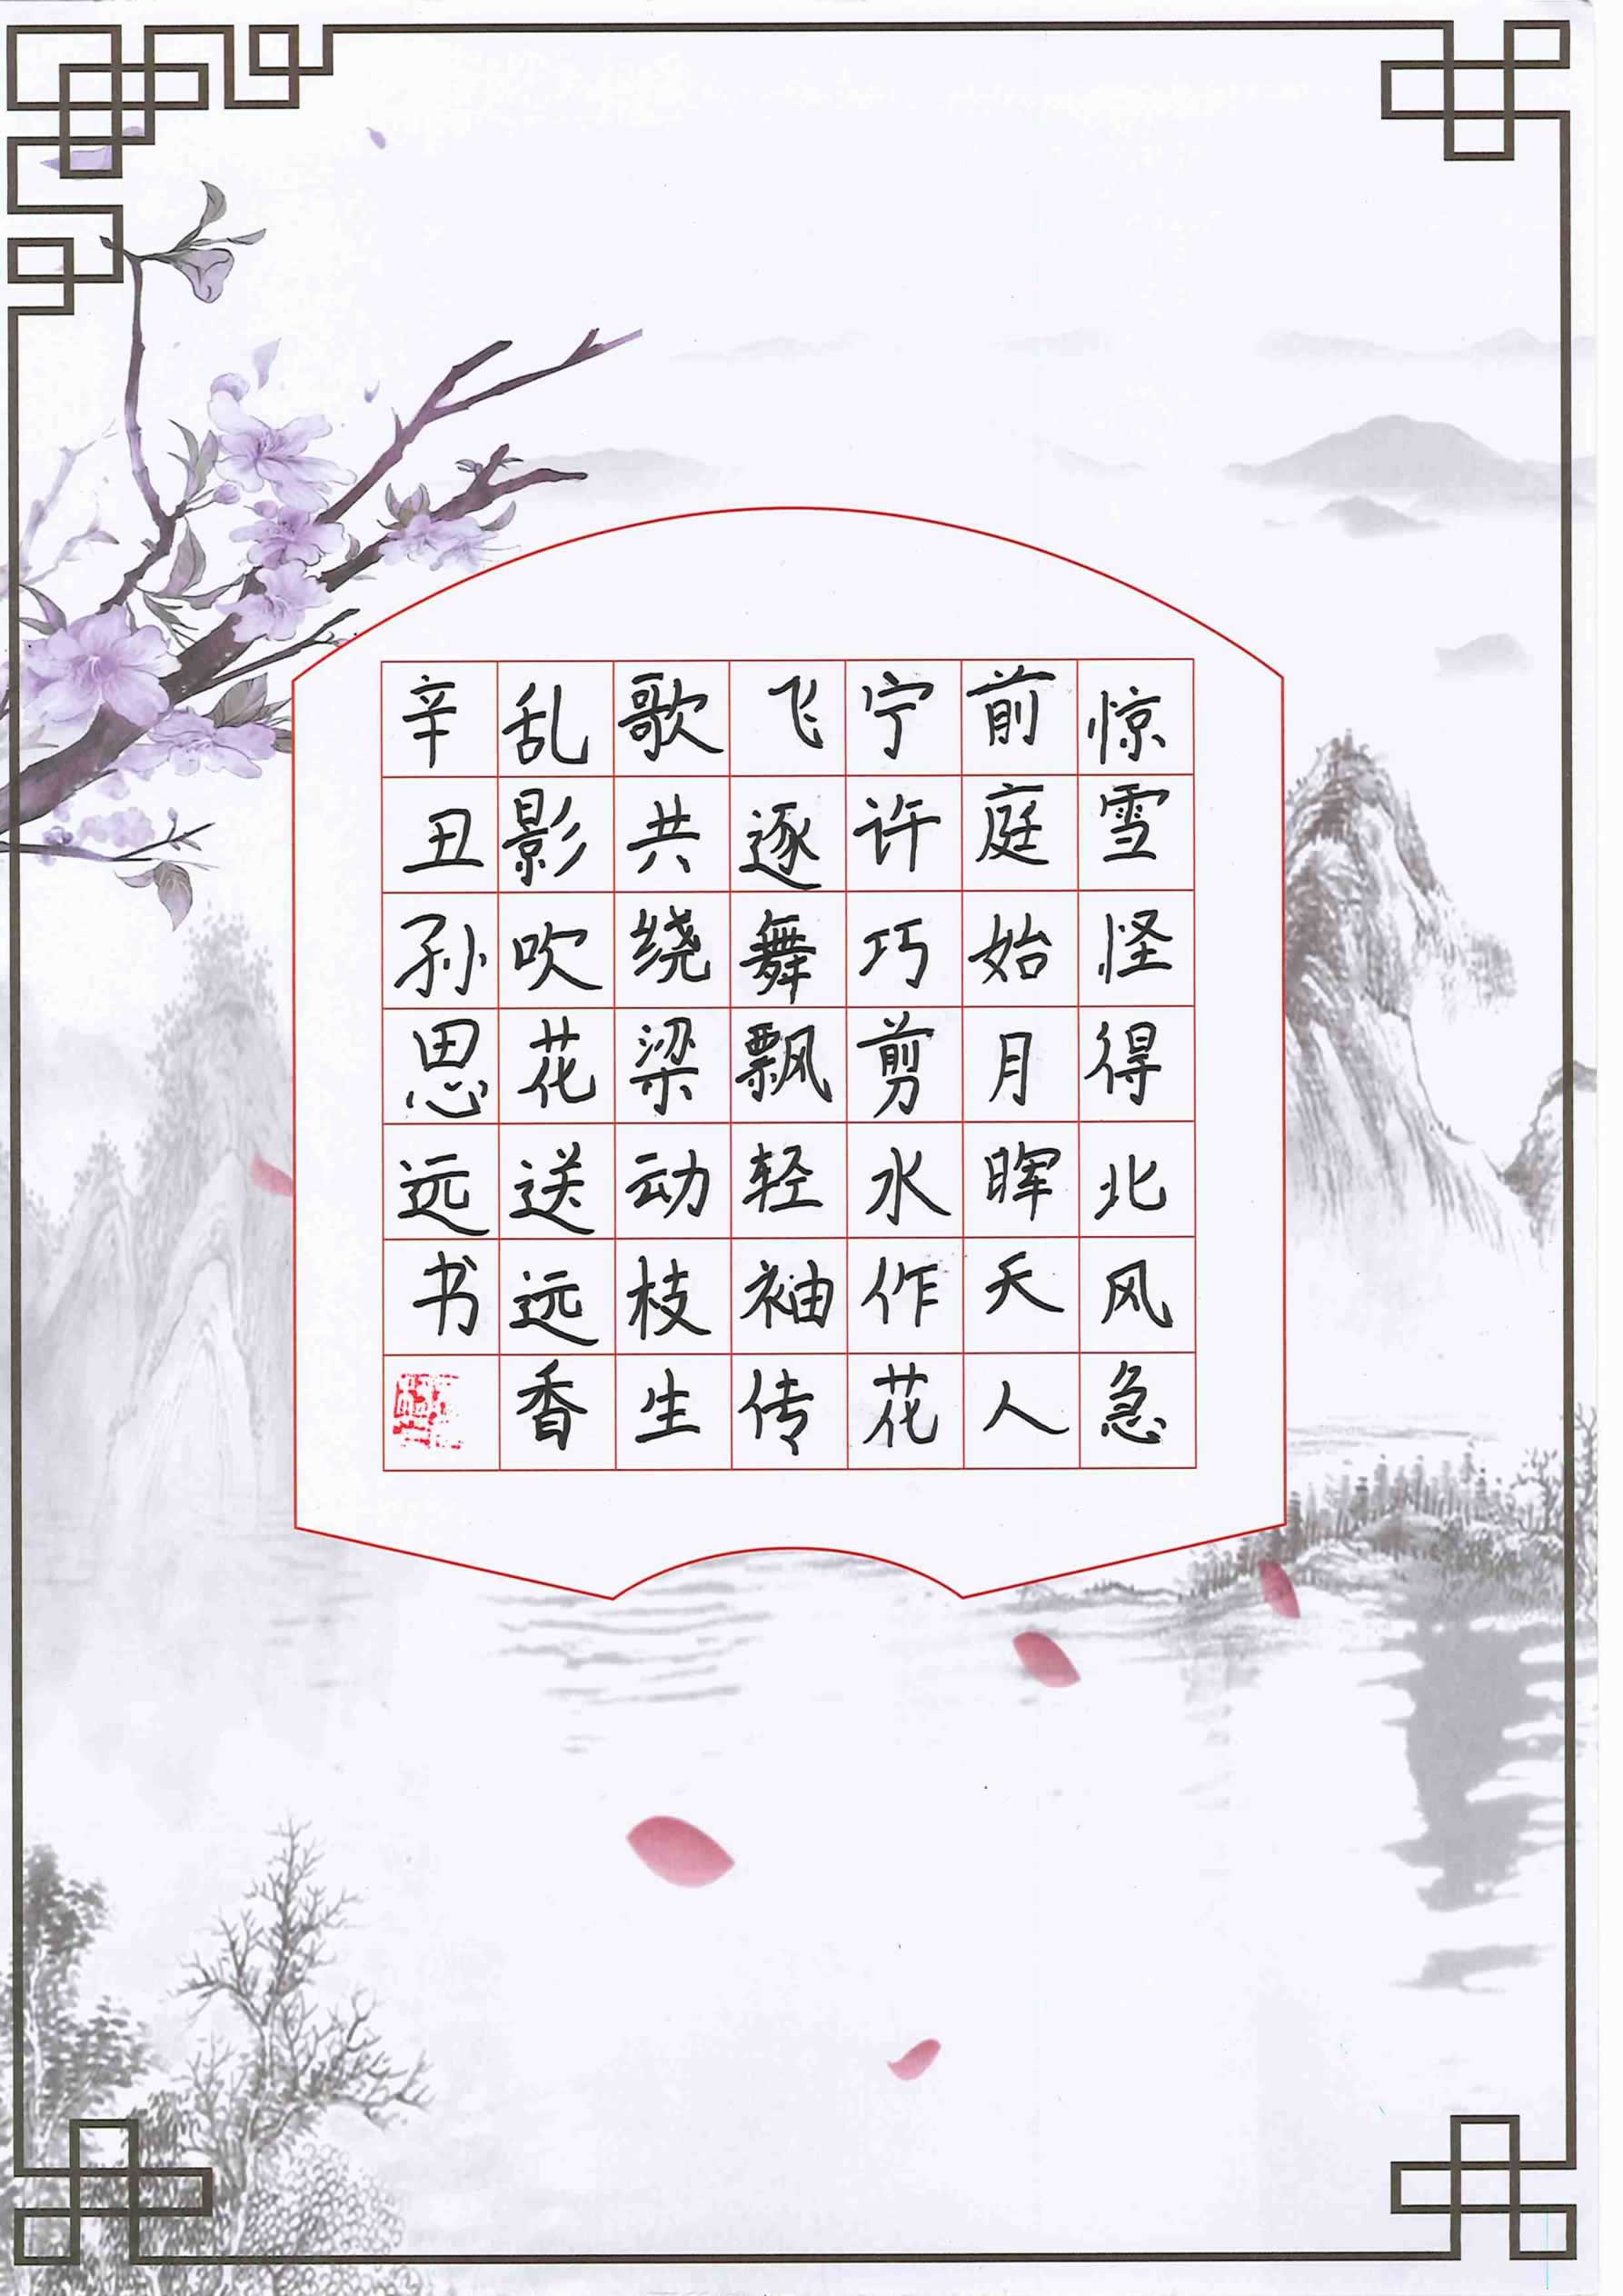 惊雪怪得北风急
前庭始月晖天人
宁许巧剪水作花
飞逐舞飘轻袖传
歌共绕梁动枝生
乱影吹花送远香
辛丑孙思远书